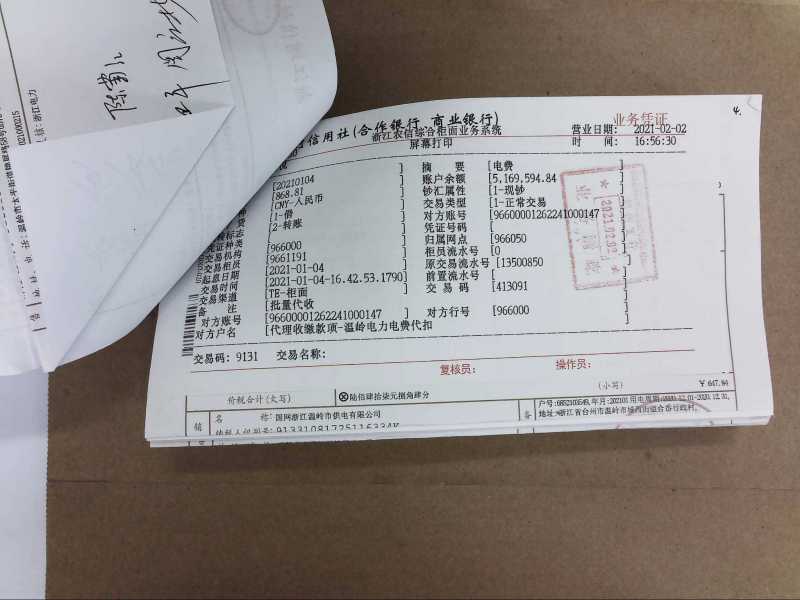 信用社(合作银行 商业银行)
业务凭证
浙江农信综合柜面业务系统
营业日期: 2021-02-02
屏幕打印
时 间: 16:56:30
4.
[20210104 ] 摘 要 [电费 ]
[868.81 ] 账户余额 [5,169,594.84 ]
[CNY-人民币 ] 钞汇属性 [1-现钞 ]
[1-借 ] 交易类型 [1-正常交易 ]
[2-转账 ] 对方账号 [96600001262241000147 ]
凭证号码 [ ]
证种类 [966000 ] 归属网点 [966050 ]
交易机构 [9661191 ] 柜员流水号 [0 ]
交易柜员 [2021-01-04 ] 原交易流水号 [13500850 ]
起息日期 [2021-01-04-16.42.53.1790] 前置流水号 [ ]
交易时间 [TE-柜面 ] 交 易 码 [413091 ]
交易渠道 [批量代收 ]
备 注 [96600001262241000147 ] 对方行号 [966000 ]
对方账号 [代理收缴款项-温岭电力电费代扣 ]
对方户名
交易码: 9131 交易名称:
复核员: 操作员:
价税合计(大写) ⊗陆佰肆拾柒元捌角肆分 (小写) ¥647.84
销 名 称: 国网浙江温岭市供电有限公司
纳税人识别号: 91331081725116334K
备
2021.02.02
陈
浙江电力